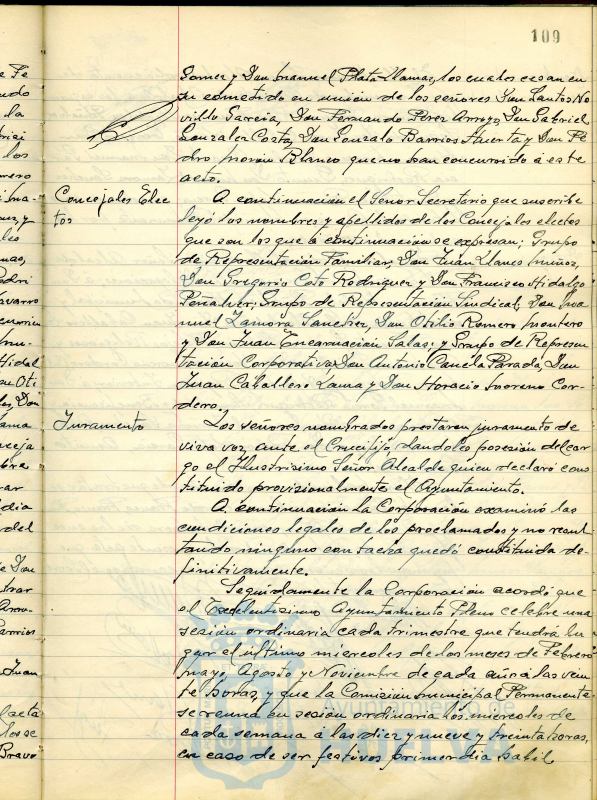 109
Gomez y Don Manuel Plata Llamas, los cuales cesan en
su cometido en union de los señores Don Santos No
villo Garcia, Don Fernando Perez Arroyo, Don Gabriel
Gonzalez Costa, Don Gonzalo Barrios Huerta y Don Pe
dro Moron Blanco que no han concurrido á este
acto.
Concejales Elec
tos
A continuacion el Señor Secretario que suscribe
leyó los nombres y apellidos de los Concejales electos
que son los que á continuación se expresan; Grupo
de Representación Familiar, Don Juan Llanes Muñoz,
Don Gregorio Coto Rodriguez y Don Francisco Hidalgo
Peñalver; Grupo de Representación Sindical, Don Ma
nuel Zamora Sanchez, Don Otilio Romero Montero
y Don Juan Encarnación Salas; y Grupo de Represen
tación Corporativa Don Antonio Canela Parada, Don
Juan Caballero Lama y Don Horacio Moreno Cor-
dero.
Juramento
Los señores nombrados prestaron juramento de
viva voz, ante el Crucifijo, dandoles posesión del car
go el Ilustrisimo Señor Alcalde quien declaró cons
tituido provisionalmente el Ayuntamiento.
A continuación la Corporación examinó las
condiciones legales de los proclamados y no resul
tando ninguno con tacha quedó constituida de-
finitivamente.
Seguidamente la Corporación acordó que
el Excelentisimo Ayuntamiento Pleno celebre una
sesión ordinaria cada trimestre que tendrá lu
gar el último miercoles de los meses de Febrero
Mayo, Agosto y Noviembre de cada año á las vein
te horas, y que la Comisión Municipal Permanente
se reuna en sesión ordinaria los miercoles de
cada semana á las diez y nueve y treinta horas,
en caso de ser festivos primer dia habil
Ayuntamiento de
HUELVA